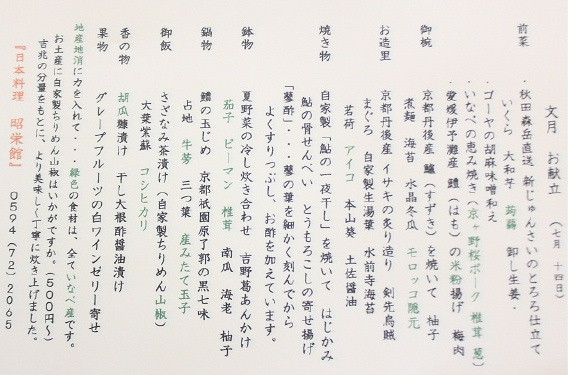 文月 お献立 (七月 十四日)
前菜
・秋田森岳直送 新じゅんさいのとろろ仕立て
いくら 大和芋 蒟蒻 卸し生姜・
ゴーヤの胡麻味噌和え
・いなべの恵み焼き(京ヶ野桜ポーク 椎茸 葱)
・愛媛伊予灘産 鱧(はも)の米粉揚げ 梅肉
御椀
京都丹後産 鱸(すずき)を焼いて 柚子
煮麺 海苔 水晶冬瓜 モロッコ隠元
お造里
京都丹後産 イサキの炙り造り 剣先烏賊
まぐろ 自家製生湯葉 水前寺海苔
若荷 アイコ 本山葵 土佐醤油
焼き物
自家製「鮎の一夜干し」を焼いて はじかみ
鮎の骨せんべい とうもろこしの寄せ揚げ
「蓼酢」・・・蓼の葉を細かく刻んでから
よくすりつぶし、お酢を加えています。
鉢物
夏野菜の冷し炊き合わせ 吉野葛あんかけ
茄子 ピーマン 椎茸 南瓜 海老 柚子
鍋物
鱧の玉じめ 京都祇園原了郭の黒七味
占地 牛蒡 三つ葉 産みたて玉子
御飯
さざなみ茶漬け(自家製ちりめん山椒)
大葉紫蘇 コシヒカリ
香の物
胡瓜糠漬け 干し大根酢醤油漬け
果物
グレープフルーツの白ワインゼリー寄せ
地産地消に力を入れて・・緑色の食材は、全ていなべ産です。
お土産に自家製ちりめん山椒はいかがですか。(500円~)
吉兆の分量をもとに、より美味しく丁寧に炊き上げました。
『日本料理 昭栄館』 0594(72)2065